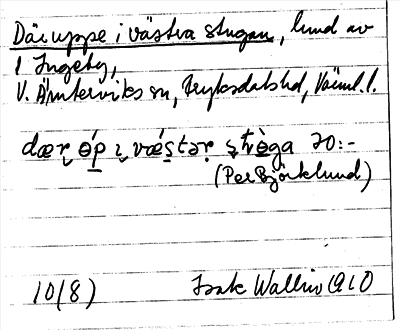 Där uppe i västra stugan, lund av
1 Ingeby,
V. Ämterviks sn, Fryksdals hd, Värml. l.
dær ǿp ı vǽstər stvèga 70:-
(Per Björklund)
10(8) Isak Wallin (AL)